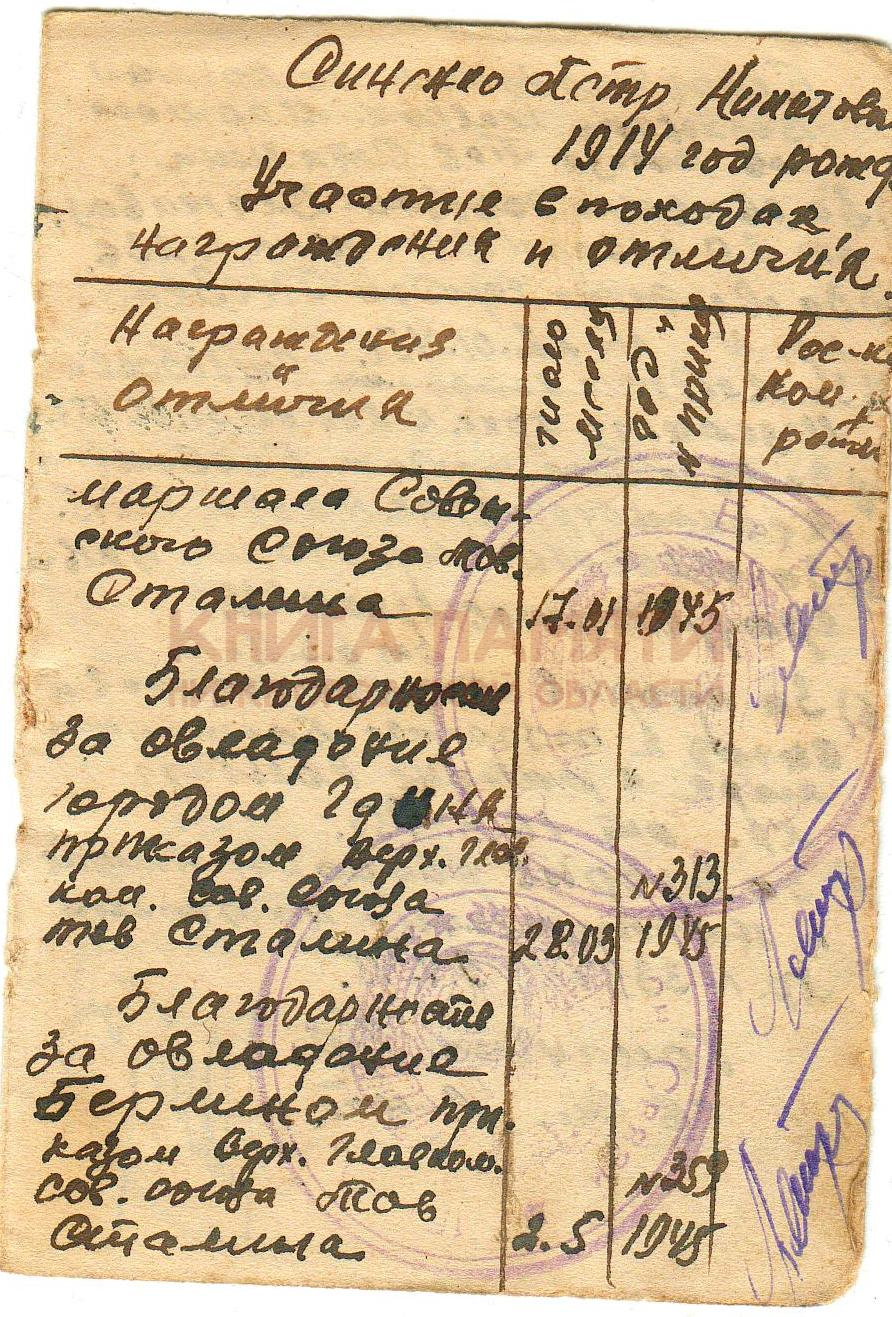 Синенко Петр Никитови
1914 год рожд
Участие в походах,
награждения и отличия.
Награждения
и
отличия
число
месяц
год и
№ приказ
Рос-к
ком.
роты
маршала Совет-
ского Союза тов.
Сталина 17.01 1945
КНИГА ПАМЯТИ
ОБЛАСТИ
Благодарность
за овладение
городом Гдыня
приказом Верх. Глав.
ком. Сов. Союза №313.
тов Сталина 28.03 1945
Благодарность
за овладение
Берлином при-
казом Верх. Главком.
Сов. союза тов №359
Сталина 2.5 1945